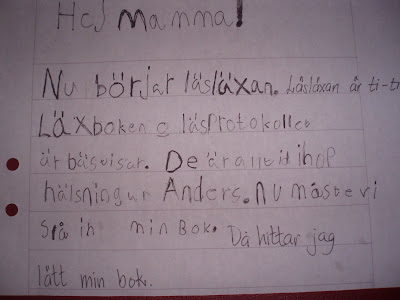 Hej Mamma!
Nu börjar läsläxan. Läsläxan är ti-ti
Läxboken o läsprotokollet
är båsvisar. De är alltid ihop
hälsningur Anders. nu måste vi
slå in min Bok. Då hittar jag
lätt min bok.